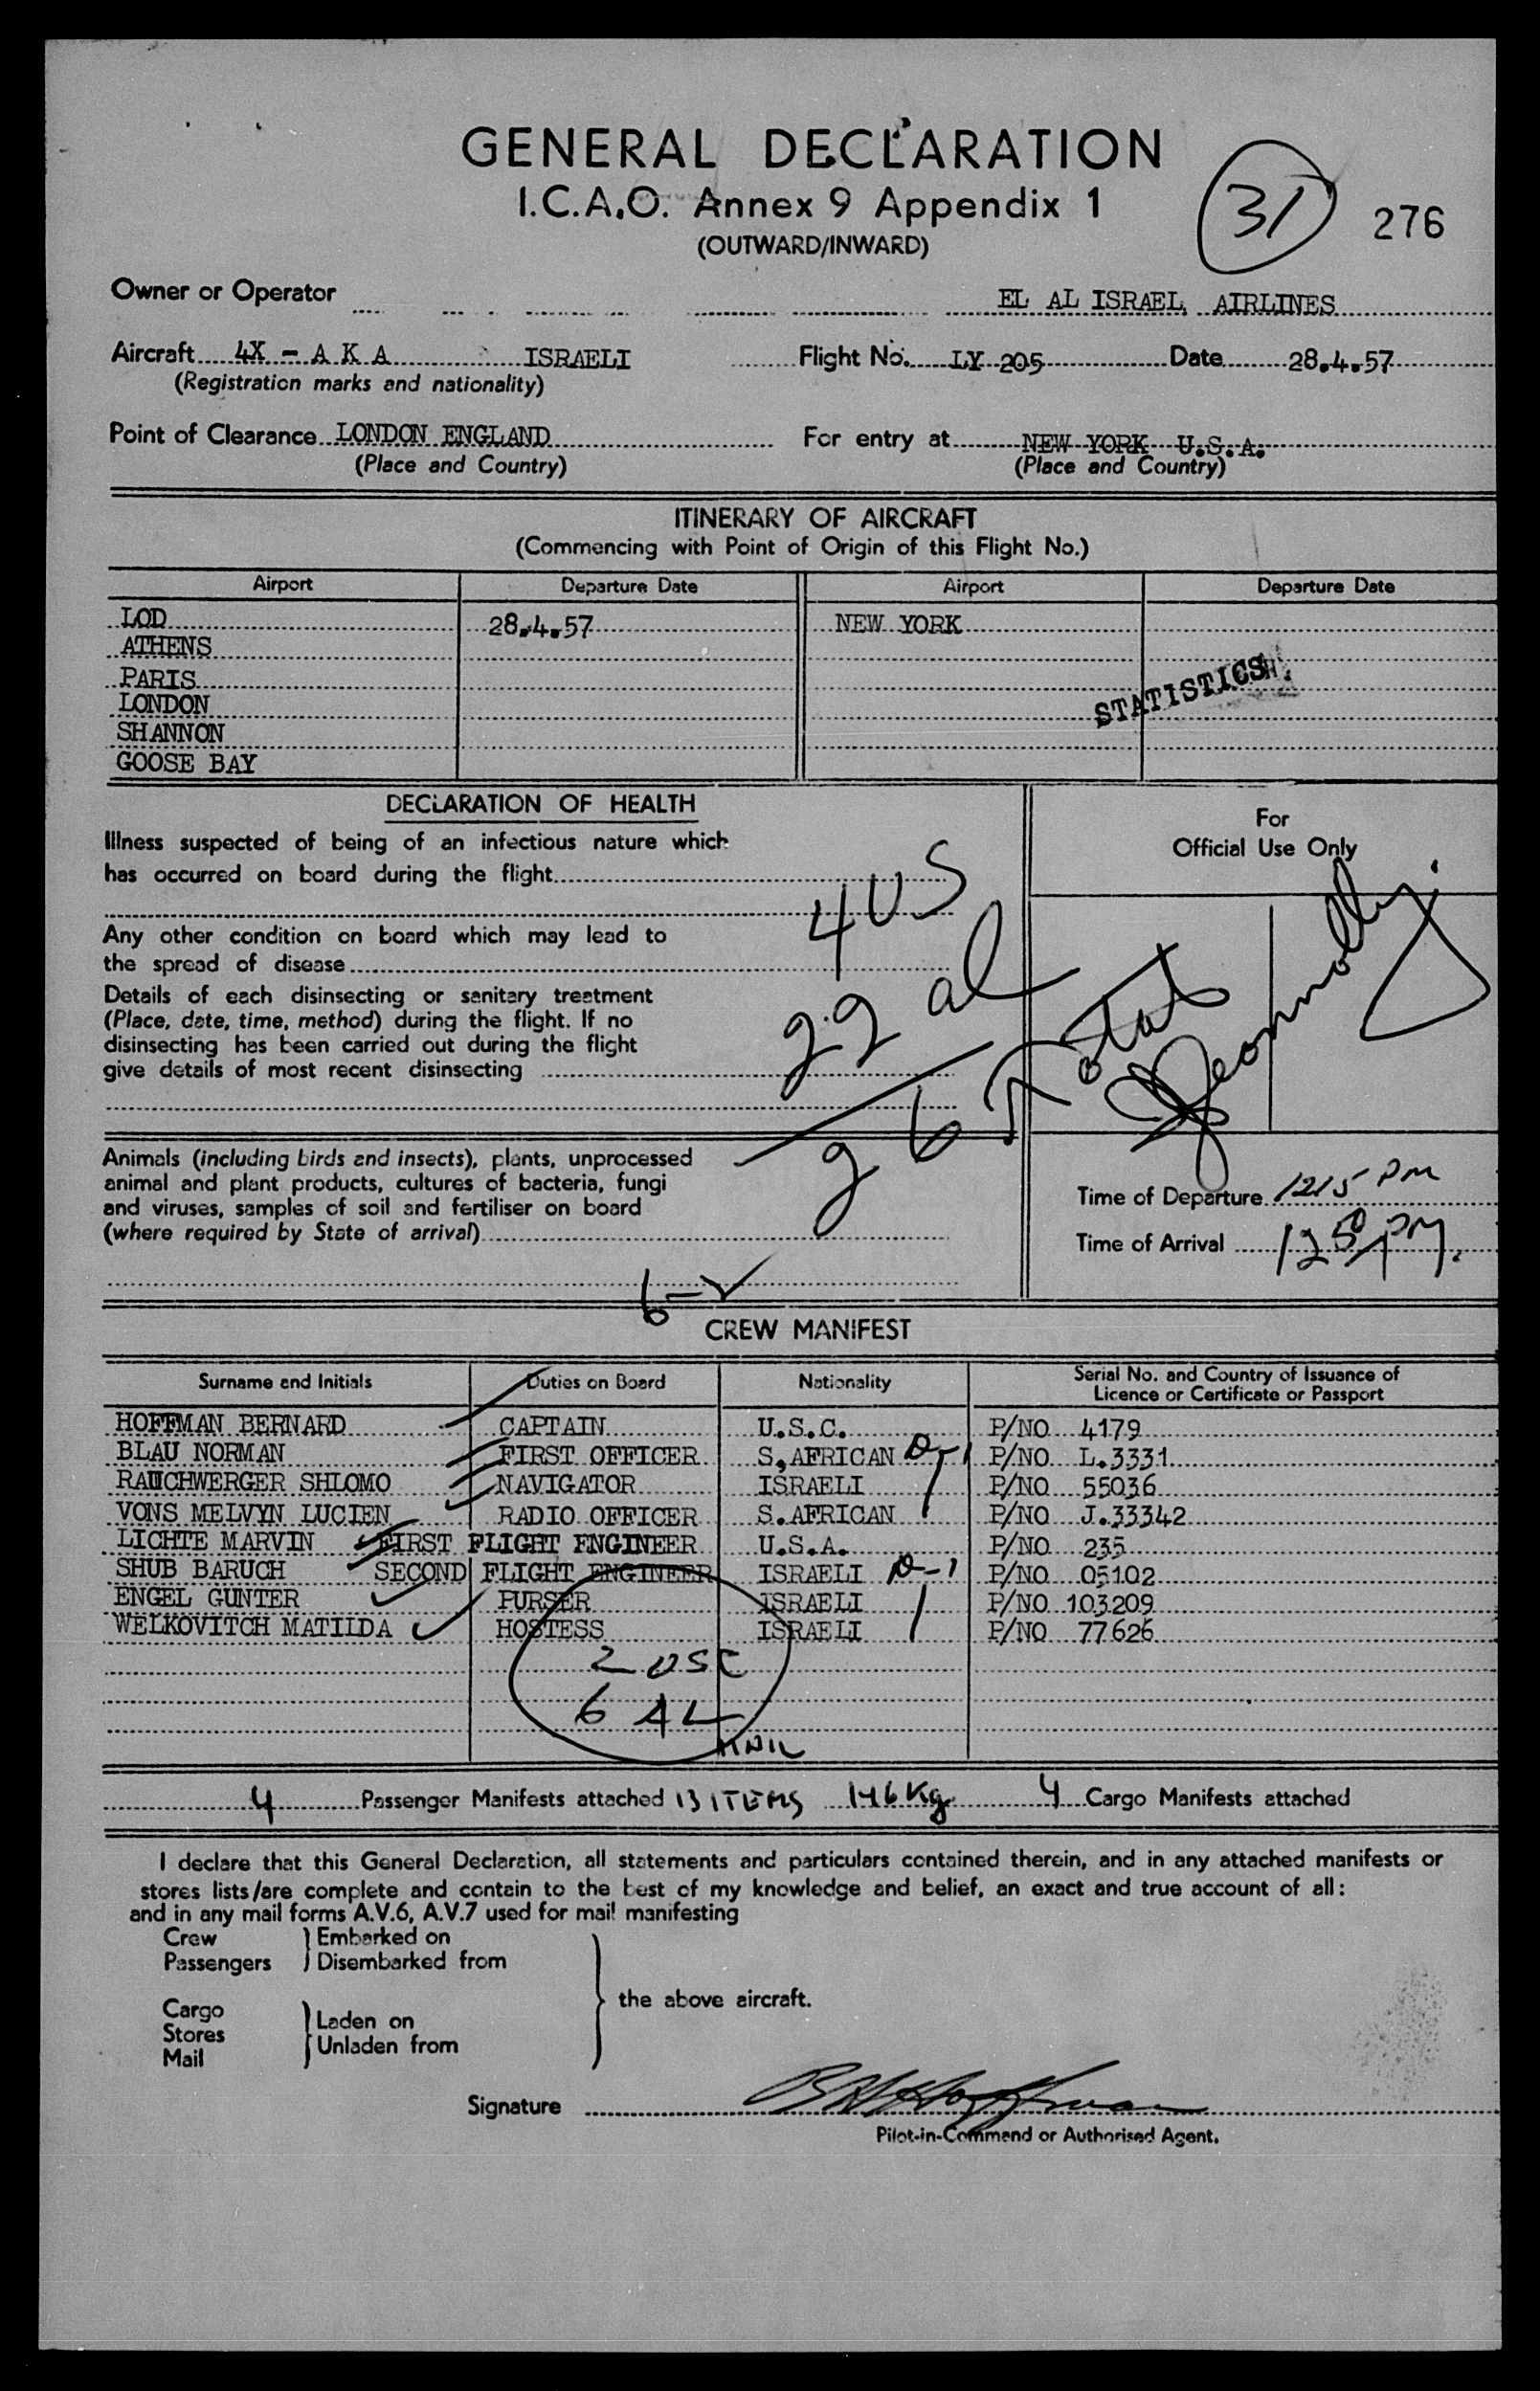 GENERAL DECLARATION
I.C.A.O. Annex 9 Appendix 1
(OUTWARD/INWARD)
31
276
Owner or Operator EL AL ISRAEL AIRLINES
Aircraft 4X - A K A ISRAELI Flight No. LY 205 Date 28.4.57
(Registration marks and nationality)
Point of Clearance LONDON ENGLAND For entry at NEW YORK U.S.A.
(Place and Country) (Place and Country)
ITINERARY OF AIRCRAFT
(Commencing with Point of Origin of this Flight No.)
Airport Departure Date Airport Departure Date
LOD 28.4.57 NEW YORK
ATHENS
PARIS
STATISTICS
LONDON
SHANNON
GOOSE BAY
DECLARATION OF HEALTH
Illness suspected of being of an infectious nature which
has occurred on board during the flight
Any other condition on board which may lead to
the spread of disease
Details of each disinsecting or sanitary treatment
(Place, date, time, method) during the flight. If no
disinsecting has been carried out during the flight
give details of most recent disinsecting
4 US
22 al
26 Total
For
Official Use Only
Animals (including birds and insects), plants, unprocessed
animal and plant products, cultures of bacteria, fungi
and viruses, samples of soil and fertiliser on board
(where required by State of arrival)
Time of Departure 1215 PM
Time of Arrival 1250 PM.
6-✓
CREW MANIFEST
Surname and Initials Duties on Board Nationality Serial No. and Country of Issuance of
Licence or Certificate or Passport
HOFFMAN BERNARD CAPTAIN U.S.C. P/NO 4179
BLAU NORMAN FIRST OFFICER S,AFRICAN D-1 P/NO L.3331
RAUCHWERGER SHLOMO NAVIGATOR ISRAELI P/NO 55036
VONS MELVYN LUCIEN RADIO OFFICER S.AFRICAN P/NO J.33342
LICHTE MARVIN FIRST FLIGHT ENGINEER U.S.A. P/NO 235
SHUB BARUCH SECOND FLIGHT ENGINEER ISRAELI D-1 P/NO 05102
ENGEL GUNTER PURSER ISRAELI P/NO 103209
WELKOVITCH MATILDA HOSTESS ISRAELI P/NO 77626
2 USC
6 AL
4 Passenger Manifests attached 13 ITEMS 146 Kg 4 Cargo Manifests attached
I declare that this General Declaration, all statements and particulars contained therein, and in any attached manifests or
stores lists/are complete and contain to the best of my knowledge and belief, an exact and true account of all:
and in any mail forms A.V.6, A.V.7 used for mail manifesting
Crew Embarked on
Passengers Disembarked from
the above aircraft.
Cargo
Stores Laden on
Mail Unladen from
Signature B H Hoffman
Pilot-in-Command or Authorised Agent.